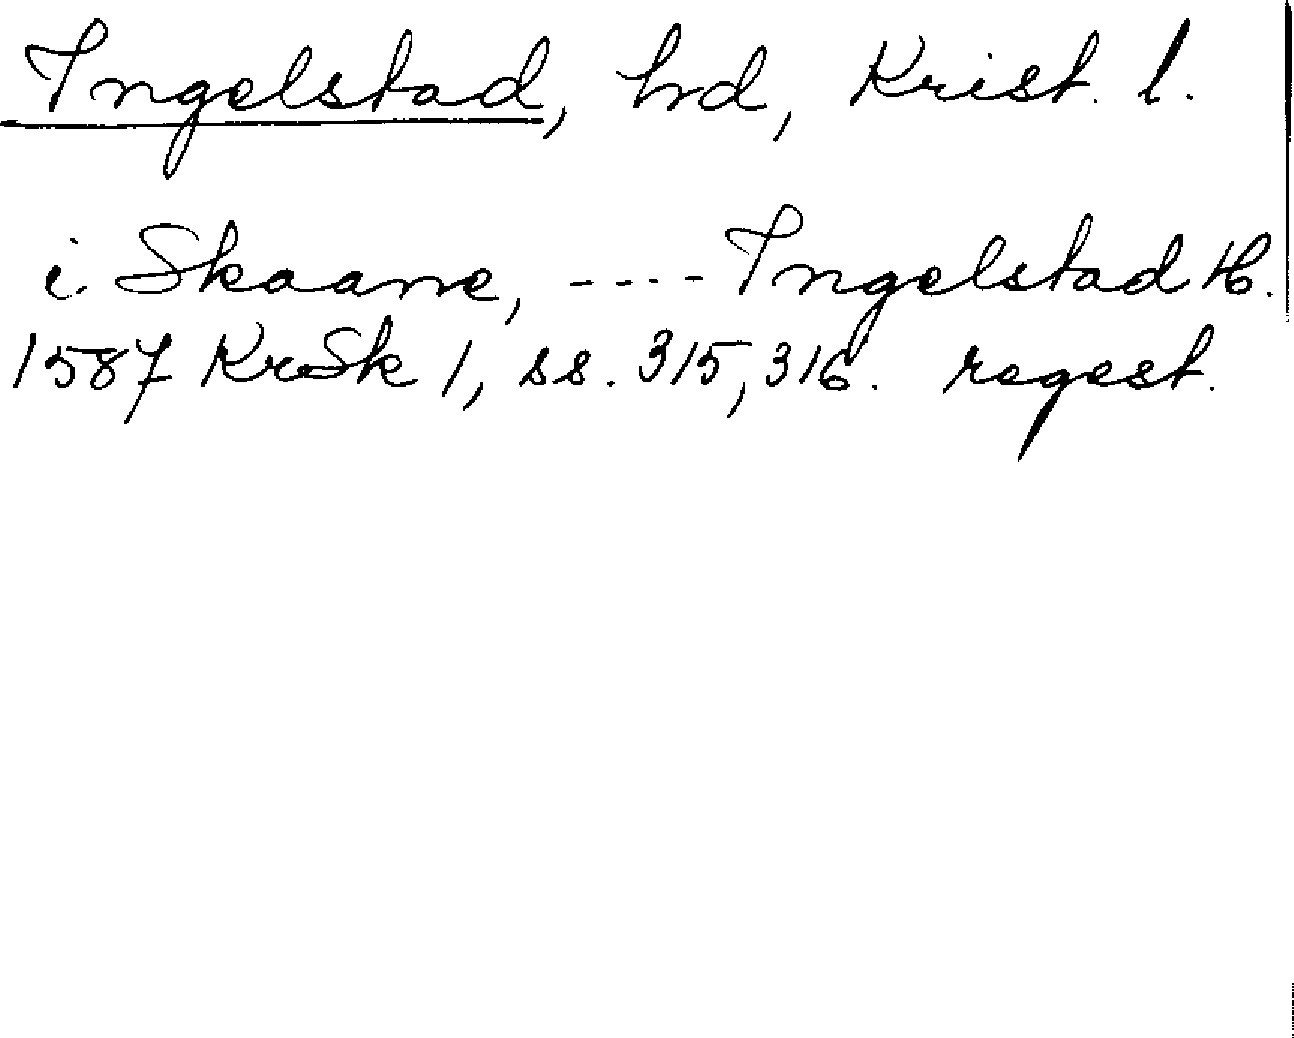 Ingelstad, hrd, Krist. l.
i Skaane, ---- Ingelstad H.
1587 KrSk 1, ss. 315, 316. regest.